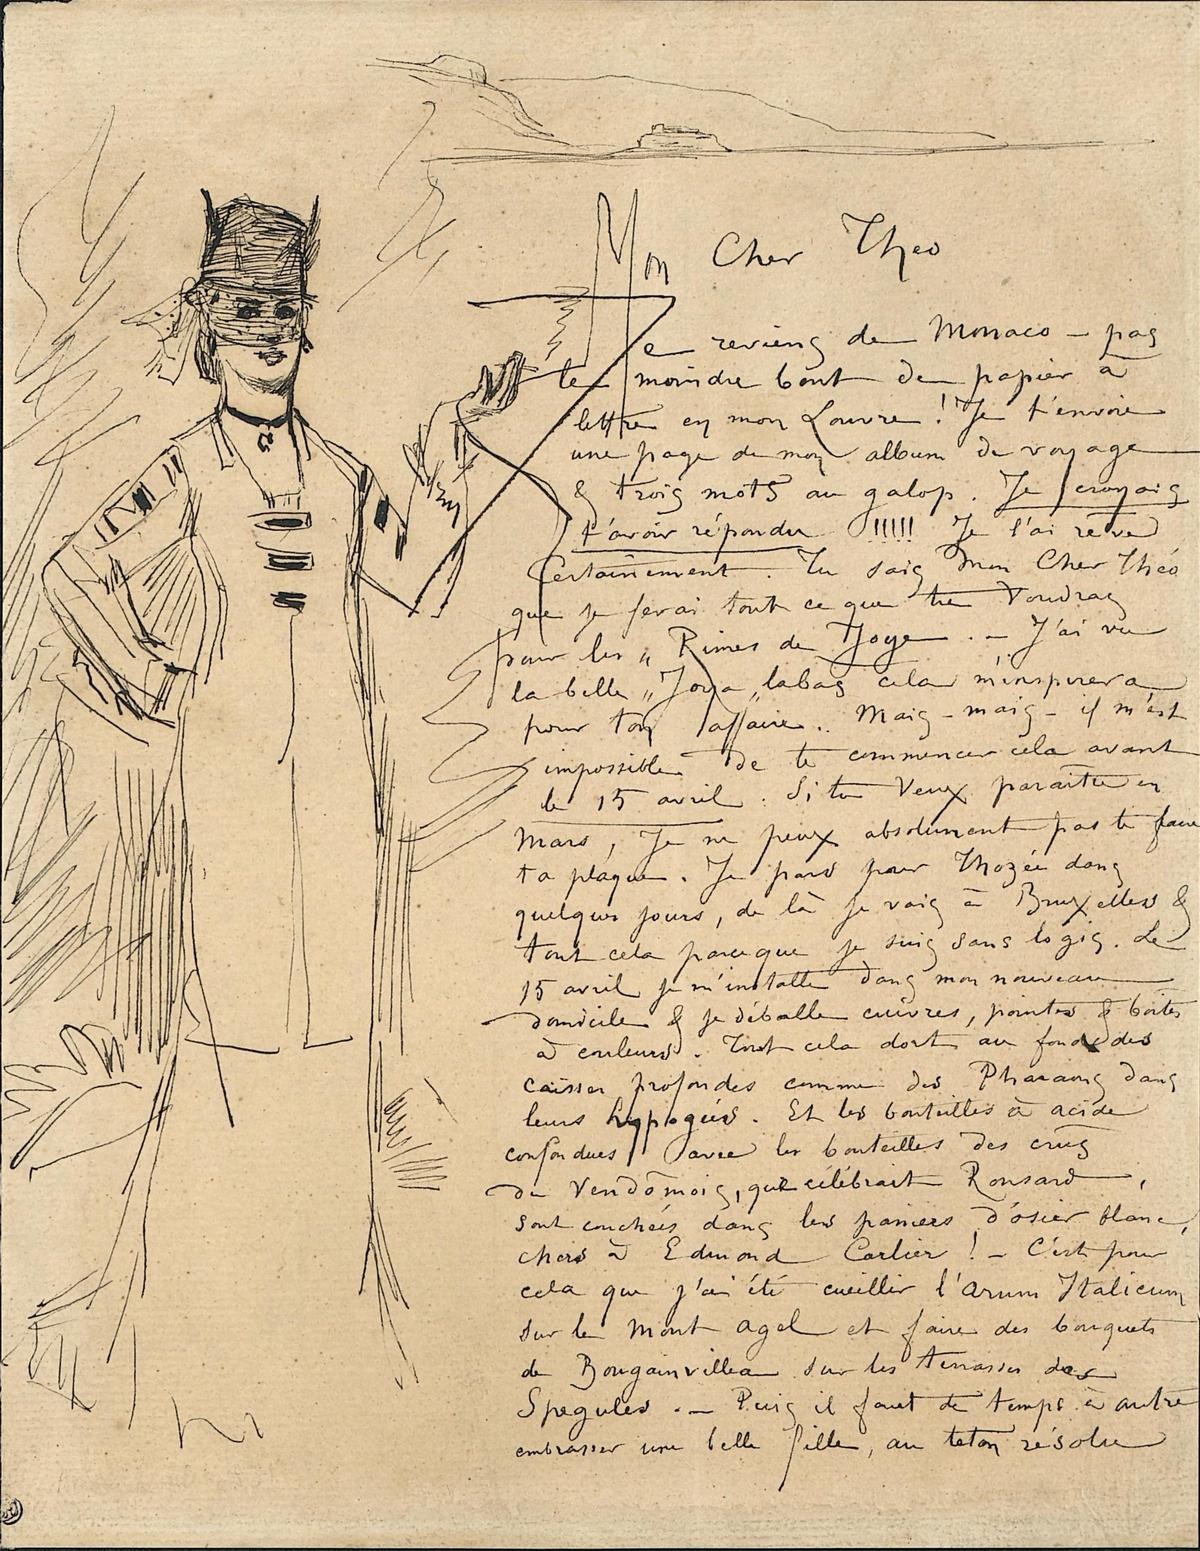 Mon Cher Theo
Je reviens de Monaco – pas
le moindre bout de papier à
lettre en mon Louvre ! Je t'envoie
une page de mon album de voyage
& trois mots au galop. Je croyais
t'avoir répondu !!!!! Je l'ai rêvé
Certainement. Tu sais Mon Cher Théo
que je ferai tout ce que tu Voudras
pour les „ Rimes de Joye . – J'ai vu
la belle „ Joya „ labas cela m'inspirera
pour ton affaire.. Mais – mais – il m'est
impossible de te commencer cela avant
le 15 avril. Si tu Veux paraitre en
Mars, Je ne peux absolument pas te faire
ta plaque. Je pars pour Thozée dans
quelques jours, de là je vais à Bruxelles &
tout cela parceque je suis sans logis. Le
15 avril je m'installe dans mon nouveau
domicile & je déballe cuivres, pointes & boites
à couleurs. Tout cela dort au fond des
caisses profondes comme des Pharaons dans
leurs hypogées. Et les bouteilles à acide
confondues avec les bouteilles des crus
du Vendômois, que célébrait Ronsard,
sont couchées dans les paniers d'osier blanc,
chers à Edmond Carlier ! – C'est pour
cela que j'ai été cueillir l'Arum Italicum
sur le Mont Agel et faire des bouquets
de Bougainvillea sur les terrasses des
Spegules. – Puis il faut de temps à autre
embrasser une belle fille, au teton résolu